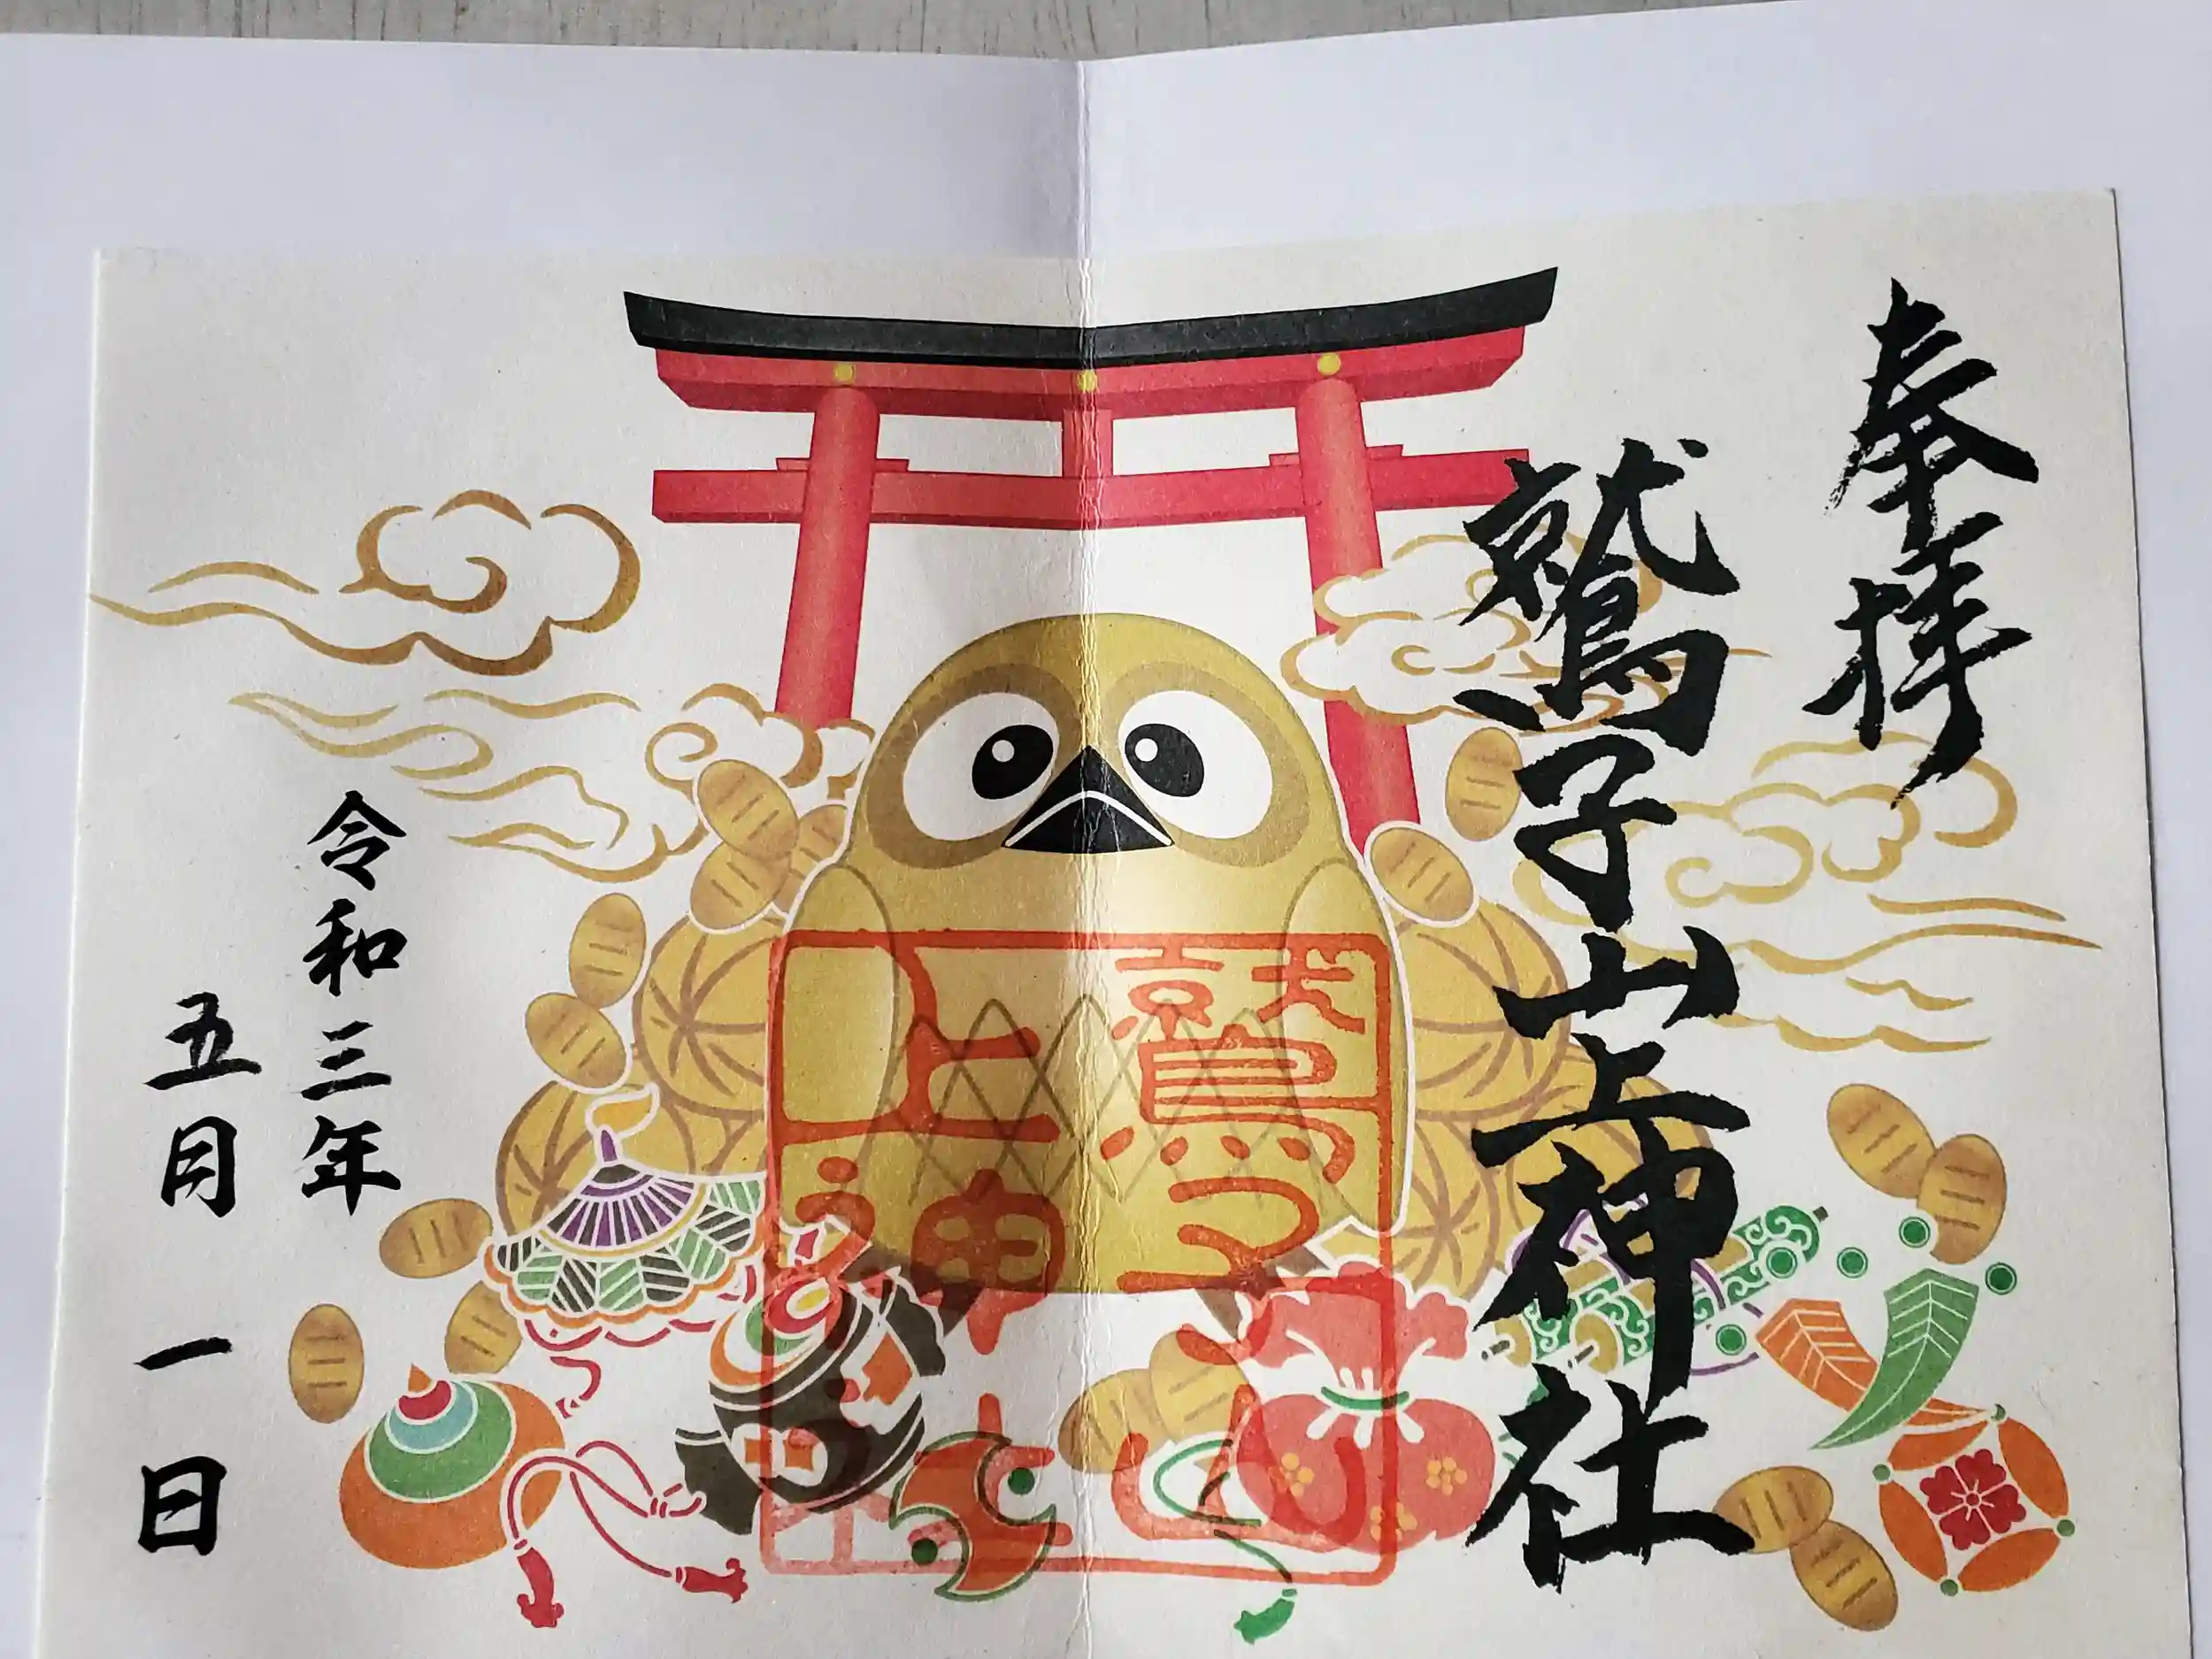 奉拝
鷲子山上神社
鷲子山
上神社
令和三年
五月一日